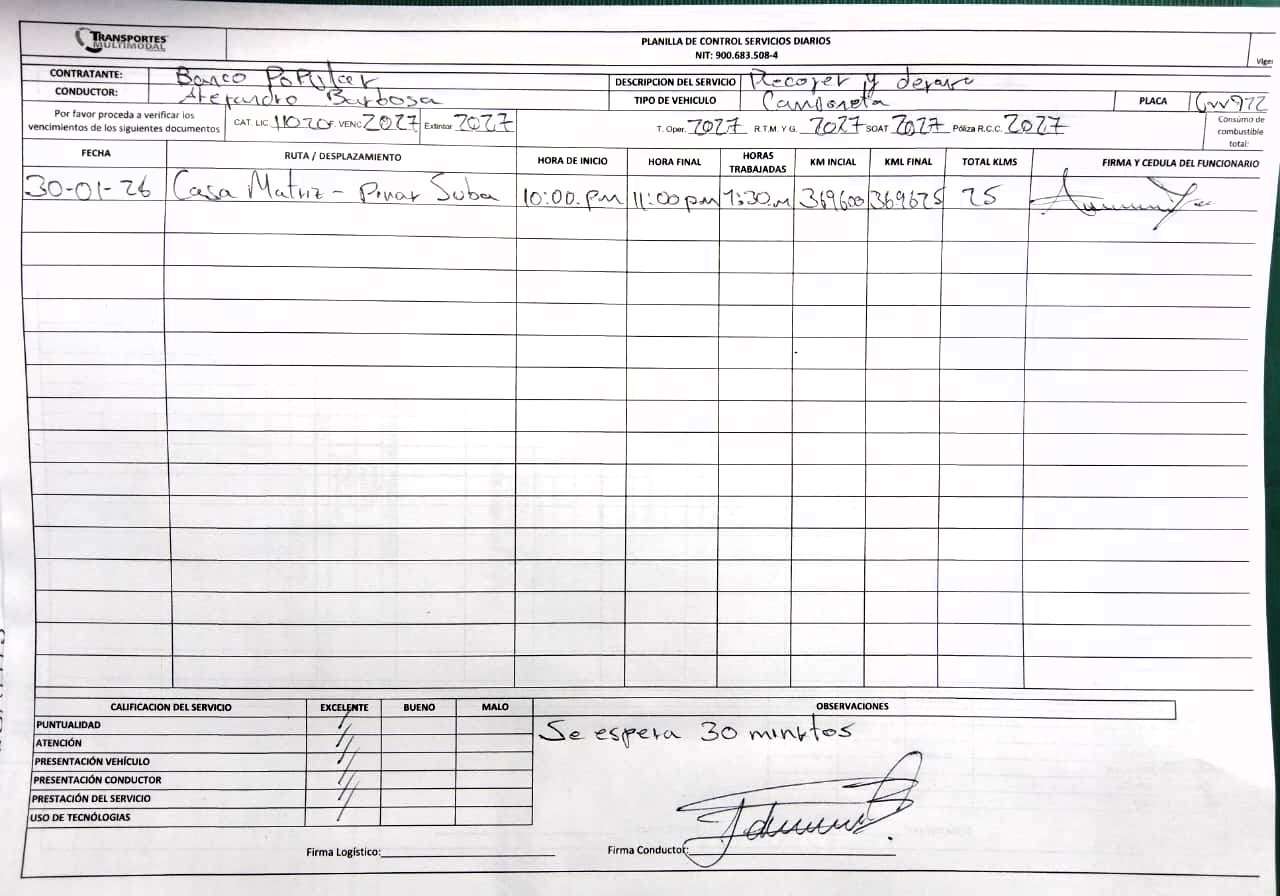 TRANSPORTES
MULTIMODAL
PLANILLA DE CONTROL SERVICIOS DIARIOS
NIT: 900.683.508-4
Viger
CONTRATANTE: Banco Popular
DESCRIPCION DEL SERVICIO Recoger y dejar
CONDUCTOR: Alejandro Barbosa
TIPO DE VEHICULO Camioneta
PLACA GVV972
Por favor proceda a verificar los
vencimientos de los siguientes documentos
CAT. LIC. F. VENC 2027 Extintor 2027
T. Oper. 2027 R.T.M. Y G. 2027 SOAT 2027 Póliza R.C.C. 2027
Consúmo de
combustible
total:
FECHA RUTA / DESPLAZAMIENTO HORA DE INICIO HORA FINAL HORAS TRABAJADAS KM INCIAL KML FINAL TOTAL KLMS FIRMA Y CEDULA DEL FUNCIONARIO
30-01-26 Casa Matriz - Pinar Suba 10:00.pm 11:00pm 1:30.m 369600 369625 25
CALIFICACION DEL SERVICIO EXCELENTE BUENO MALO
PUNTUALIDAD
ATENCIÓN
PRESENTACIÓN VEHÍCULO
PRESENTACIÓN CONDUCTOR
PRESTACIÓN DEL SERVICIO
USO DE TECNÓLOGIAS
OBSERVACIONES
Se espera 30 minutos
Firma Logístico:
Firma Conductor: